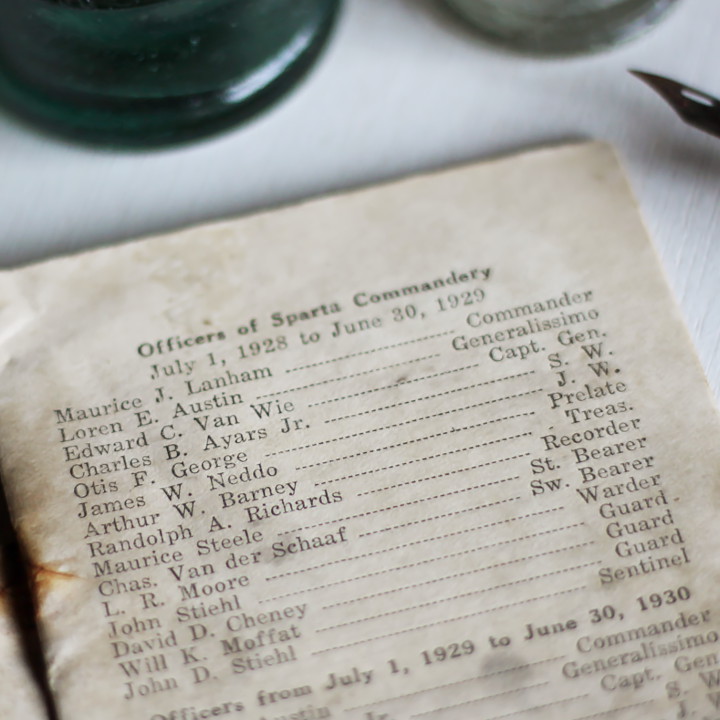 Officers of Sparta Commandery
July 1, 1928 to June 30, 1929
Maurice J. Lanham ---------- Commander
Loren E. Austin ---------- Generalissimo
Edward C. Van Wie ---------- Capt. Gen.
Charles B. Ayars Jr. ---------- S. W.
Otis F. George ---------- J. W.
James W. Neddo ---------- Prelate
Arthur W. Barney ---------- Treas.
Randolph A. Richards ---------- Recorder
Maurice Steele ---------- St. Bearer
Chas. Van der Schaaf ---------- Sw. Bearer
L. R. Moore ---------- Warder
John Stiehl ---------- Guard
David D. Cheney ---------- Guard
Will K. Moffat ---------- Guard
John D. Stiehl ---------- Sentinel
Officers from July 1, 1929 to June 30, 1930
Austin ---------- Commander
Jr. ---------- Generalissimo
Capt. Gen
S. W
J.